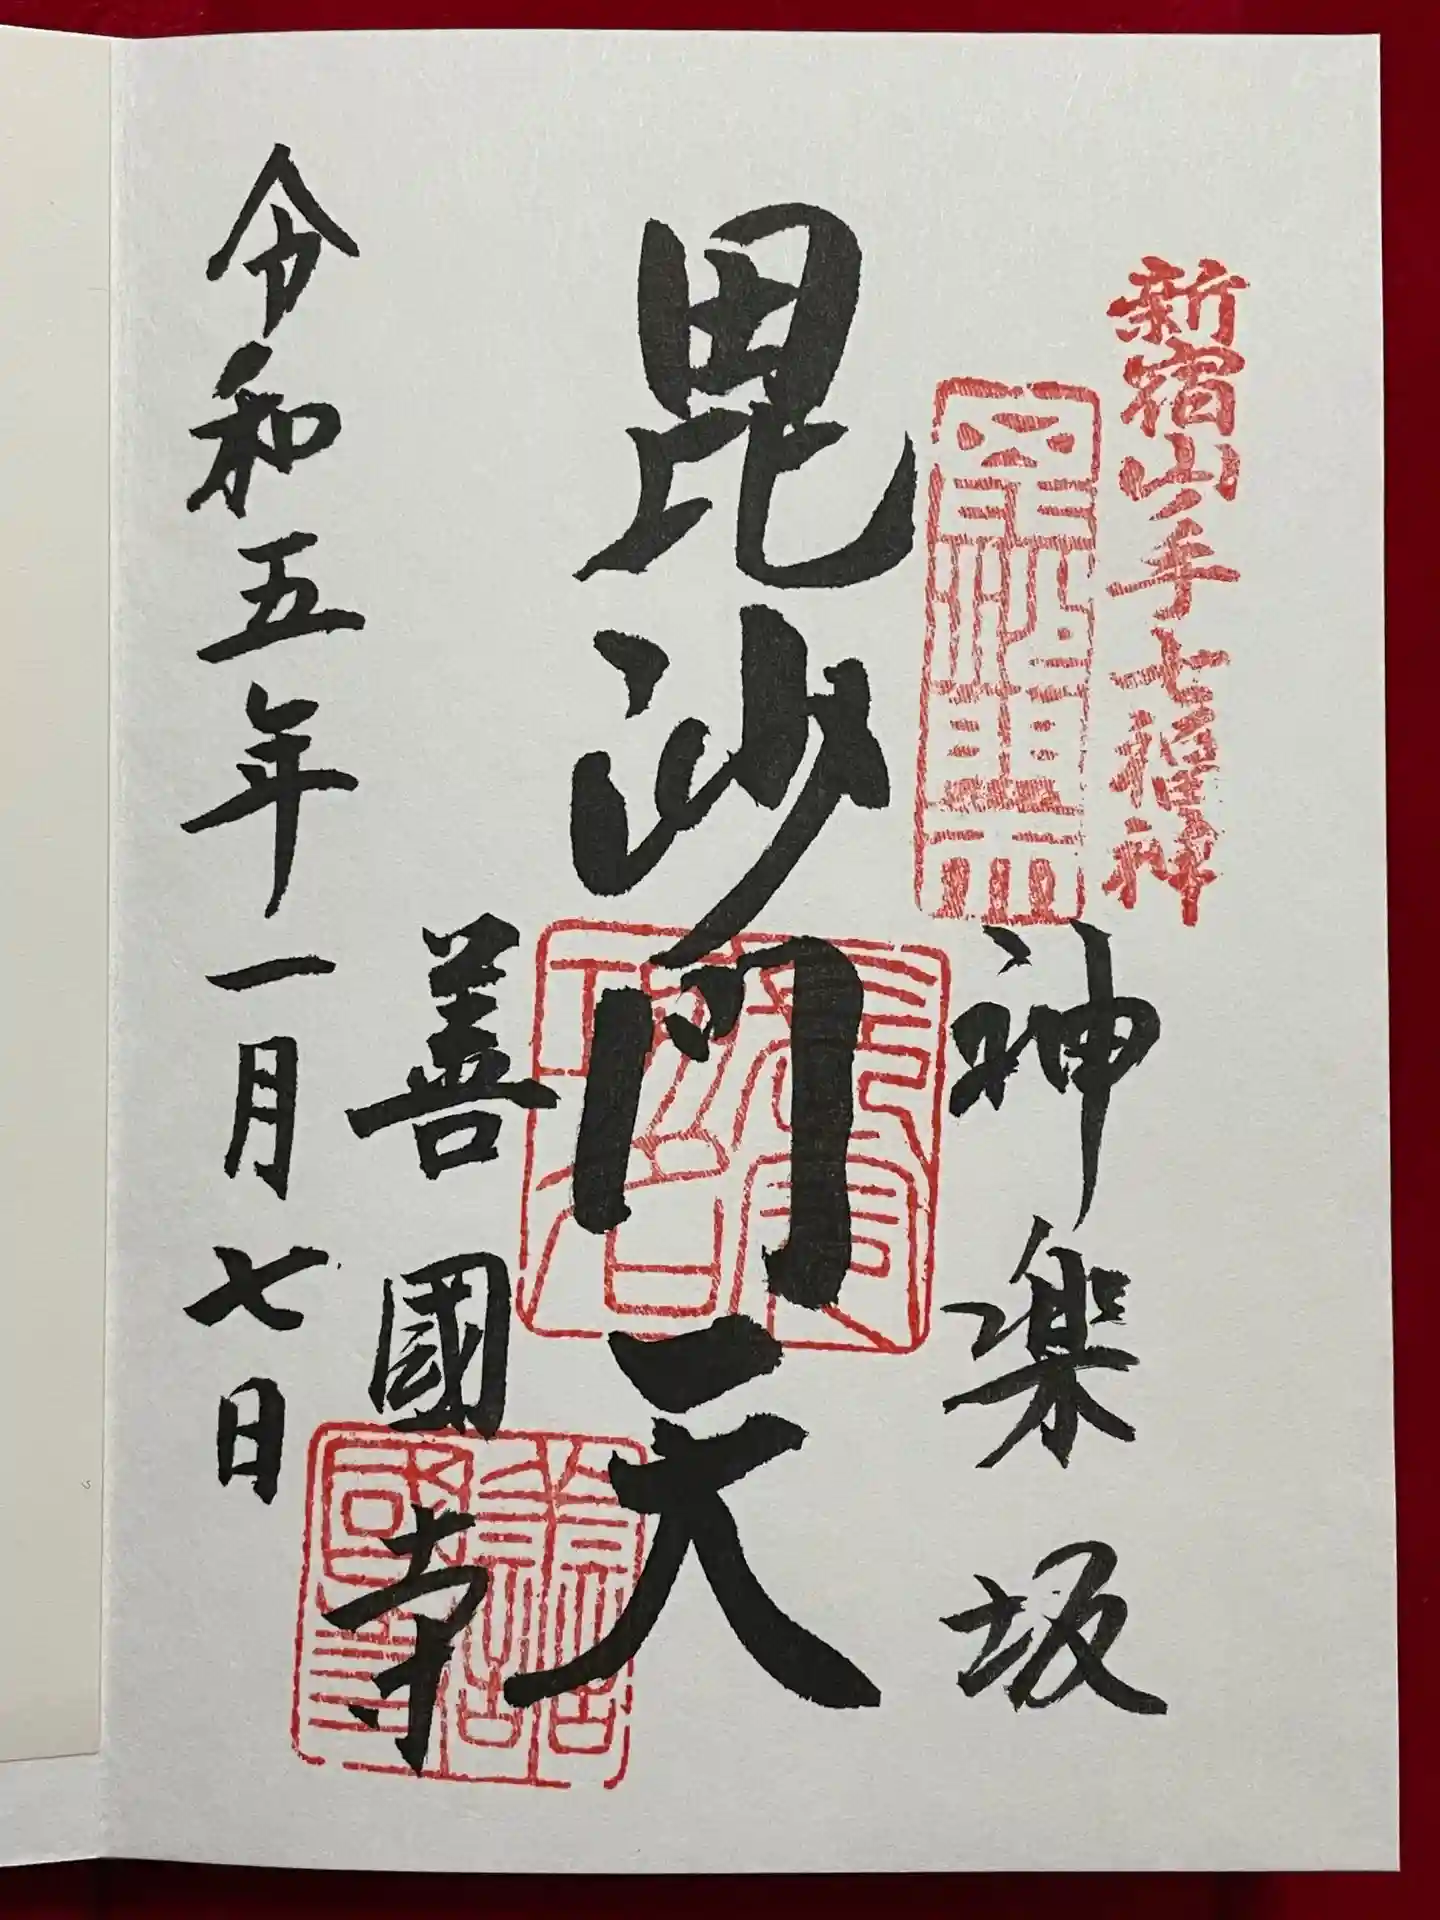 新宿山手七福神
神楽坂
毘沙門天
善國寺
令和五年一月七日